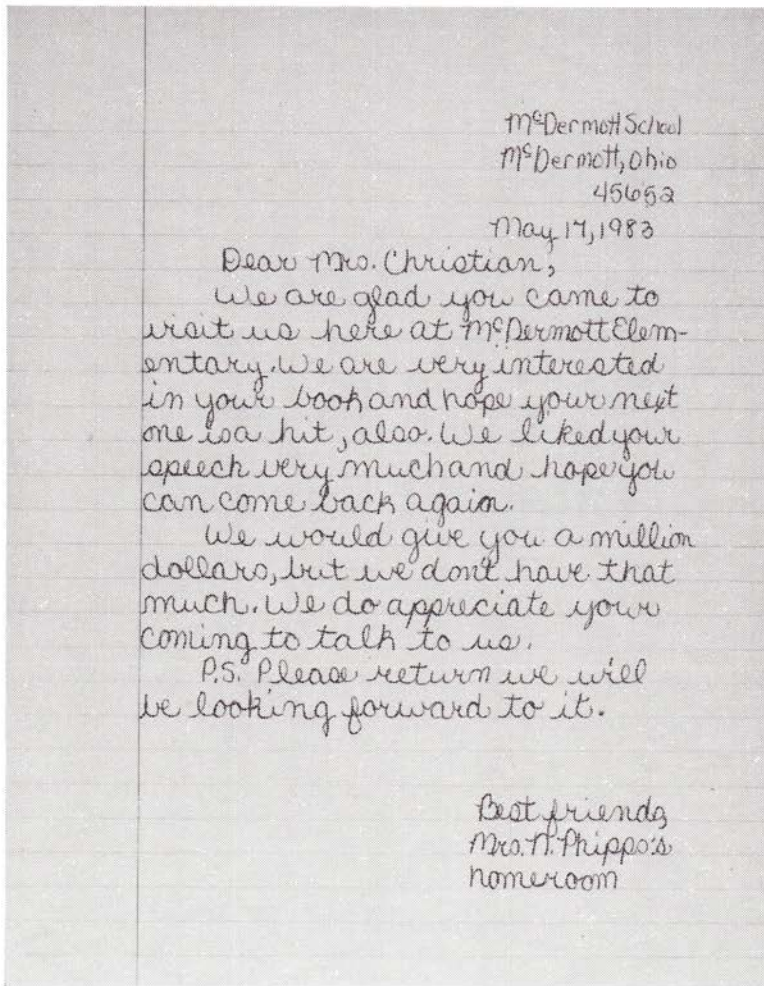 McDermott School
McDermott, Ohio
45652
May 17, 1983
Dear Mrs. Christian,
We are glad you came to
visit us here at McDermott Elem-
entary. We are very interested
in your book and hope your next
one is a hit, also. We liked your
speech very much and hope you
can come back again.
We would give you a million
dollars, but we don't have that
much. We do appreciate your
coming to talk to us.
P.S. Please return we will
be looking forward to it.
Best friends,
Mrs. N. Phipps's
homeroom